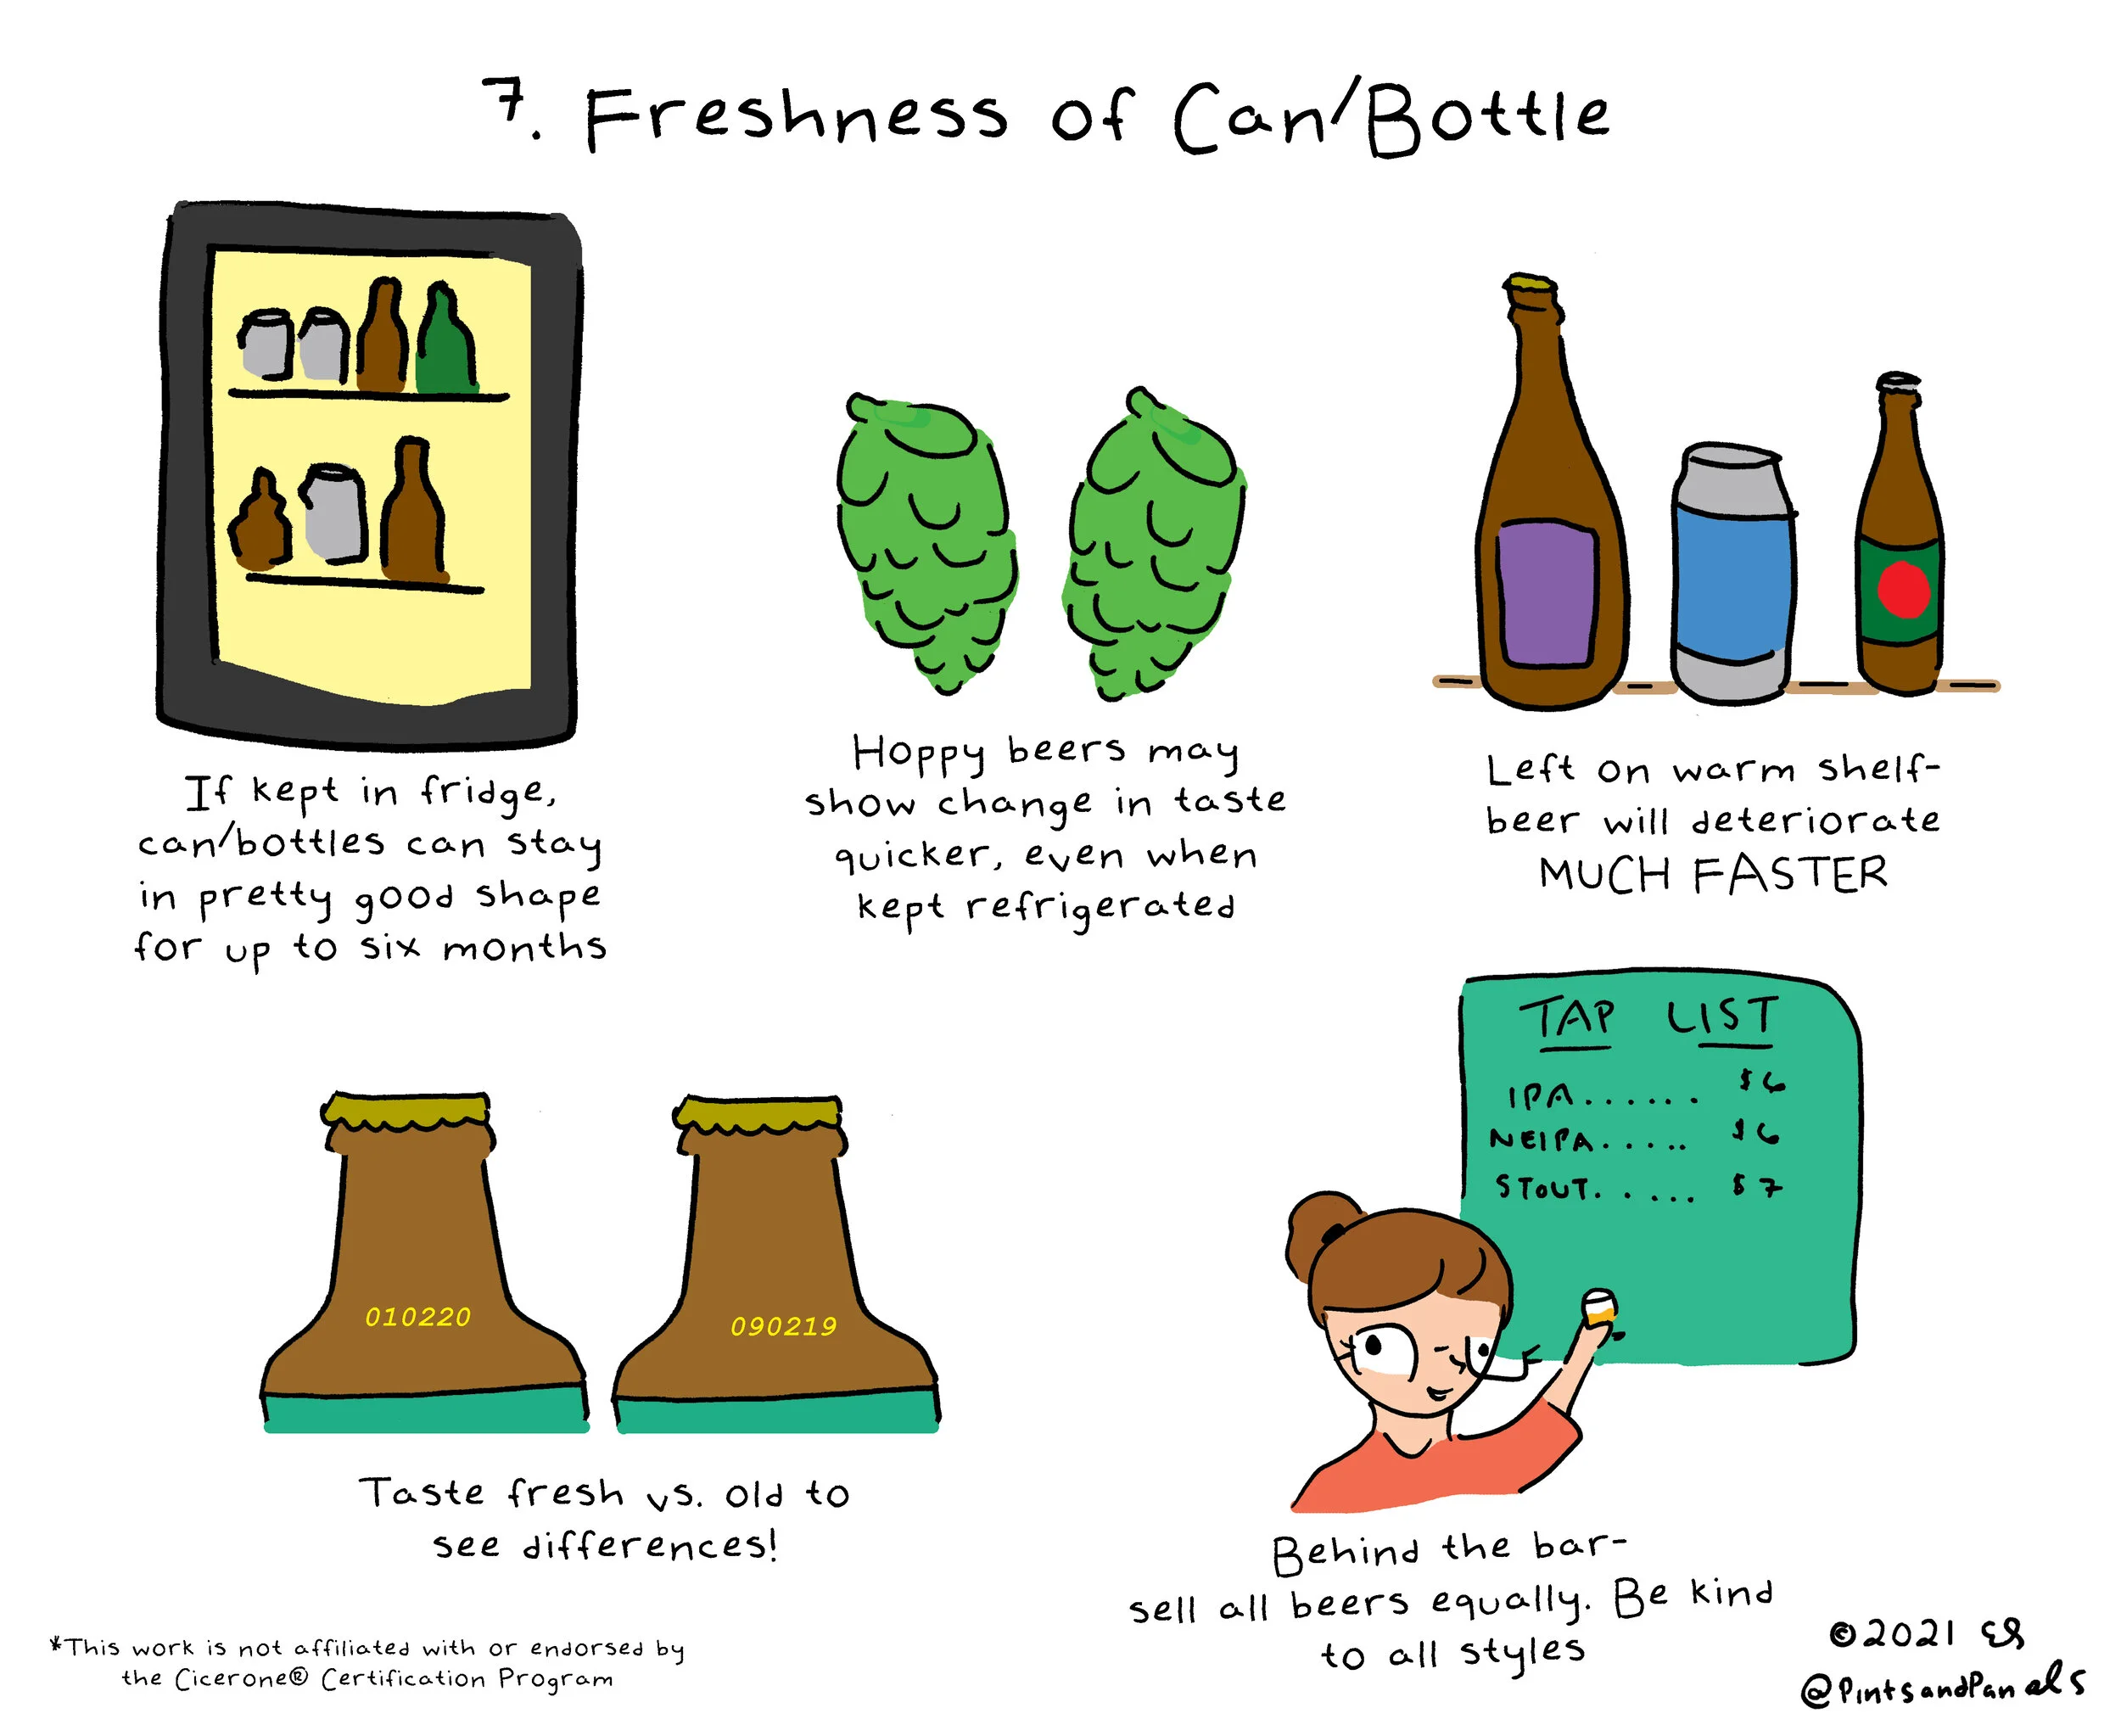 7. Freshness of Can/Bottle
If kept in fridge,
can/bottles can stay
in pretty good shape
for up to six months
Hoppy beers may
show change in taste
quicker, even when
kept refrigerated
Left on warm shelf-
beer will deteriorate
MUCH FASTER
010220
090219
Taste fresh vs. old to
see differences!
TAP LIST
IPA...... $6
NEIPA..... $6
STOUT..... $7
Behind the bar-
sell all beers equally. Be kind
to all styles
*This work is not affiliated with or endorsed by
the Cicerone® Certification Program
©2021 ES
@PintsandPanels